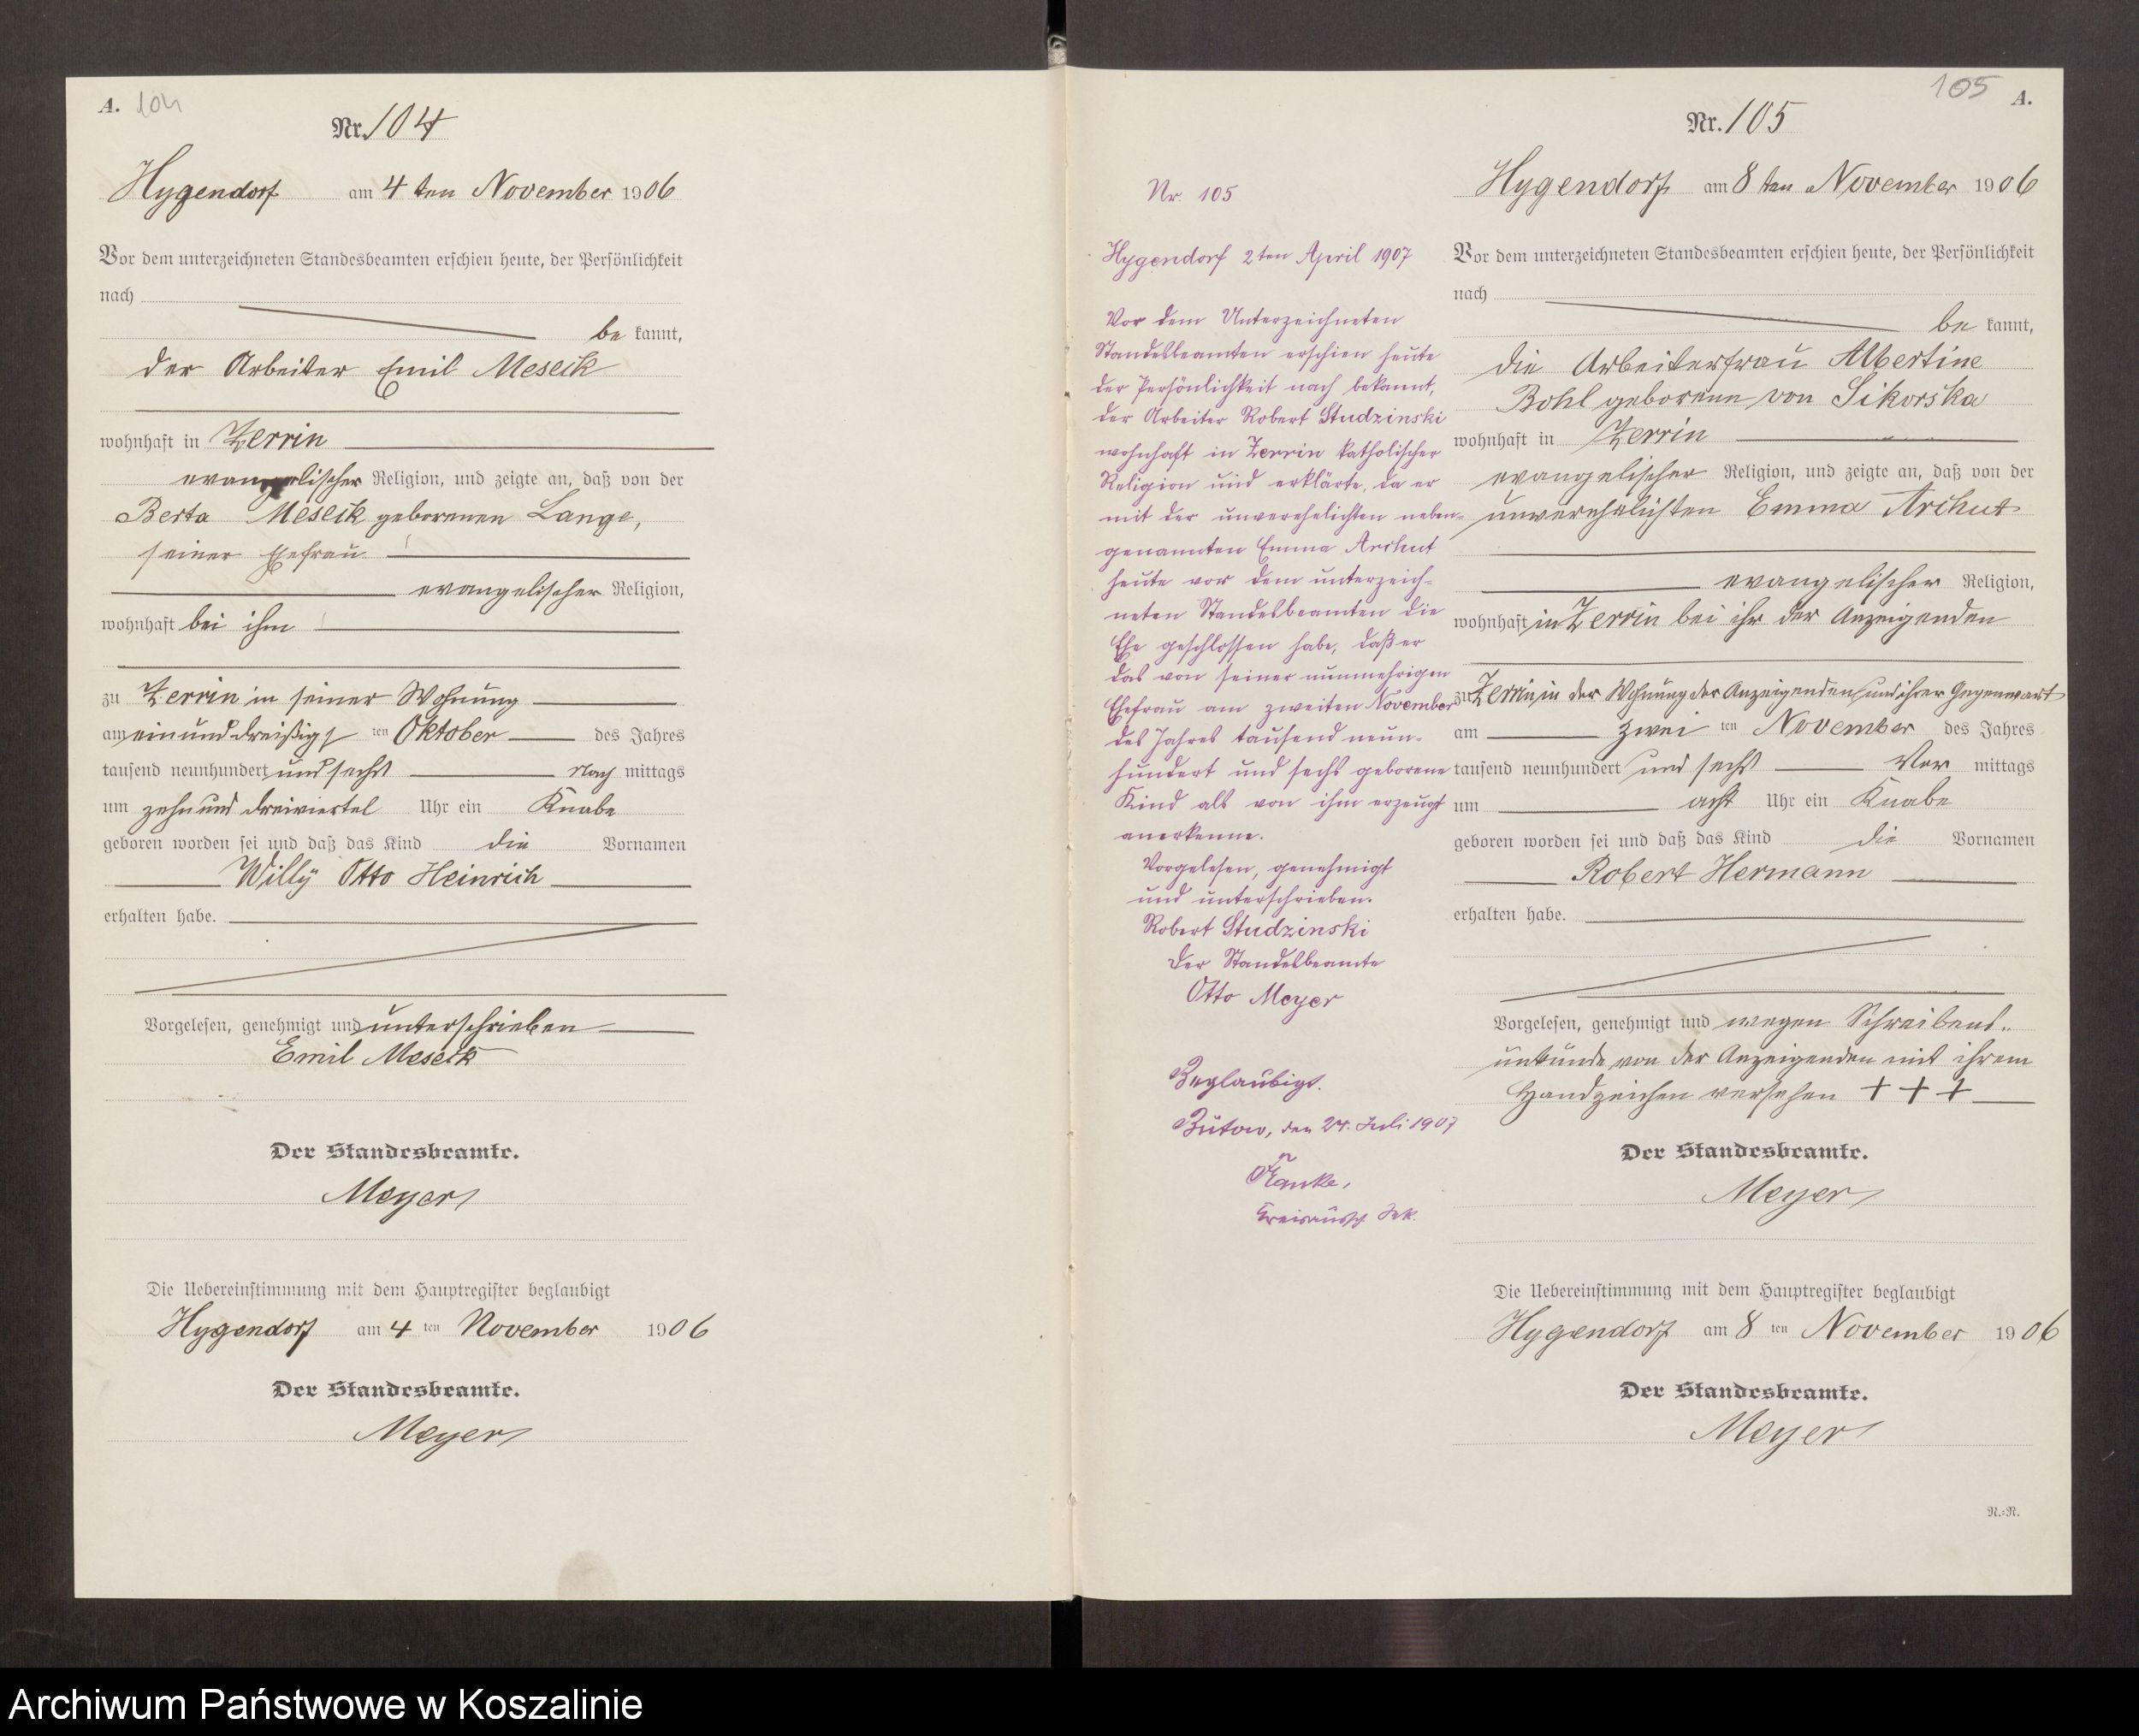 A. 104
Nr. 104
Hygendorf am 4 ten November 1906
Vor dem unterzeichneten Standesbeamten erschien heute, der Persönlichkeit
nach
be kannt,
der Arbeiter Emil Meseck
wohnhaft in Zerrin
evangelischer Religion, und zeigte an, daß von der
Berta Meseck geborenen Lange,
seiner Ehefrau
evangelischer Religion,
wohnhaft bei ihm
zu Zerrin in seiner Wohnung
am einunddreißigs ten Oktober des Jahres
tausend neunhundert und sechs Nach mittags
um zehn und dreiviertel Uhr ein Knabe
geboren worden sei und daß das Kind die Vornamen
Willy Otto Heinrich
erhalten habe.
Vorgelesen, genehmigt und unterschrieben
Emil Meseck
Der Standesbeamte.
Meyer
Die Uebereinstimmung mit dem Hauptregister beglaubigt
Hygendorf am 4 ten November 1906
Der Standesbeamte.
Meyer
Nr. 105
Hygendorf 2ten April 1907
Vor dem Unterzeichneten
Standesbeamten erschien heute
der Persönlichkeit nach bekannt,
der Arbeiter Robert Studzinski
wohnhaft in Zerrin katholischer
Religion und erklärte, da er
mit der unverehelichten neben-
genannten Emma Archut
heute vor dem unterzeich-
neten Standesbeamten die
Ehe geschlossen habe, daß er
das von seiner nunmehrigen
Ehefrau am zweiten November
des Jahres tausend neun-
hundert und sechs geborene
Kind als von ihm erzeugt
anerkenne.
Vorgelesen, genehmigt
und unterschrieben.
Robert Studzinski
Der Standesbeamte
Otto Meyer
Beglaubigt.
Bütow, den 24. Juli 1907
Kreisaussch Sek.
105 A.
Nr. 105
Hygendorf am 8 ten November 1906
Vor dem unterzeichneten Standesbeamten erschien heute, der Persönlichkeit
nach
be kannt,
die Arbeiterfrau Albertine
Bohl geborene von Sikorska
wohnhaft in Zerrin
evangelischer Religion, und zeigte an, daß von der
unverehelichten Emma Archut
evangelischer Religion,
wohnhaft in Zerrin bei ihr der Anzeigenden
zu Zerrin in der Wohnung der Anzeigenden und ihrer Gegenwart
am zwei ten November des Jahres
tausend neunhundert und sechs Vor mittags
um acht Uhr ein Knabe
geboren worden sei und daß das Kind die Vornamen
Robert Hermann
erhalten habe.
Vorgelesen, genehmigt und wegen Schreibens-
unkunde von der Anzeigenden mit ihrem
Handzeichen versehen + + +
Der Standesbeamte.
Meyer
Die Uebereinstimmung mit dem Hauptregister beglaubigt
Hygendorf am 8 ten November 1906
Der Standesbeamte.
Meyer
N.=N.
Archiwum Państwowe w Koszalinie